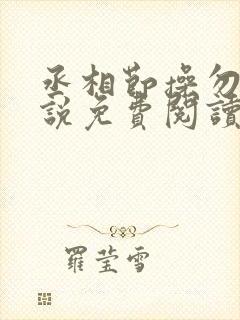 丞相節操勿
說免費閱讀
羅莹雪